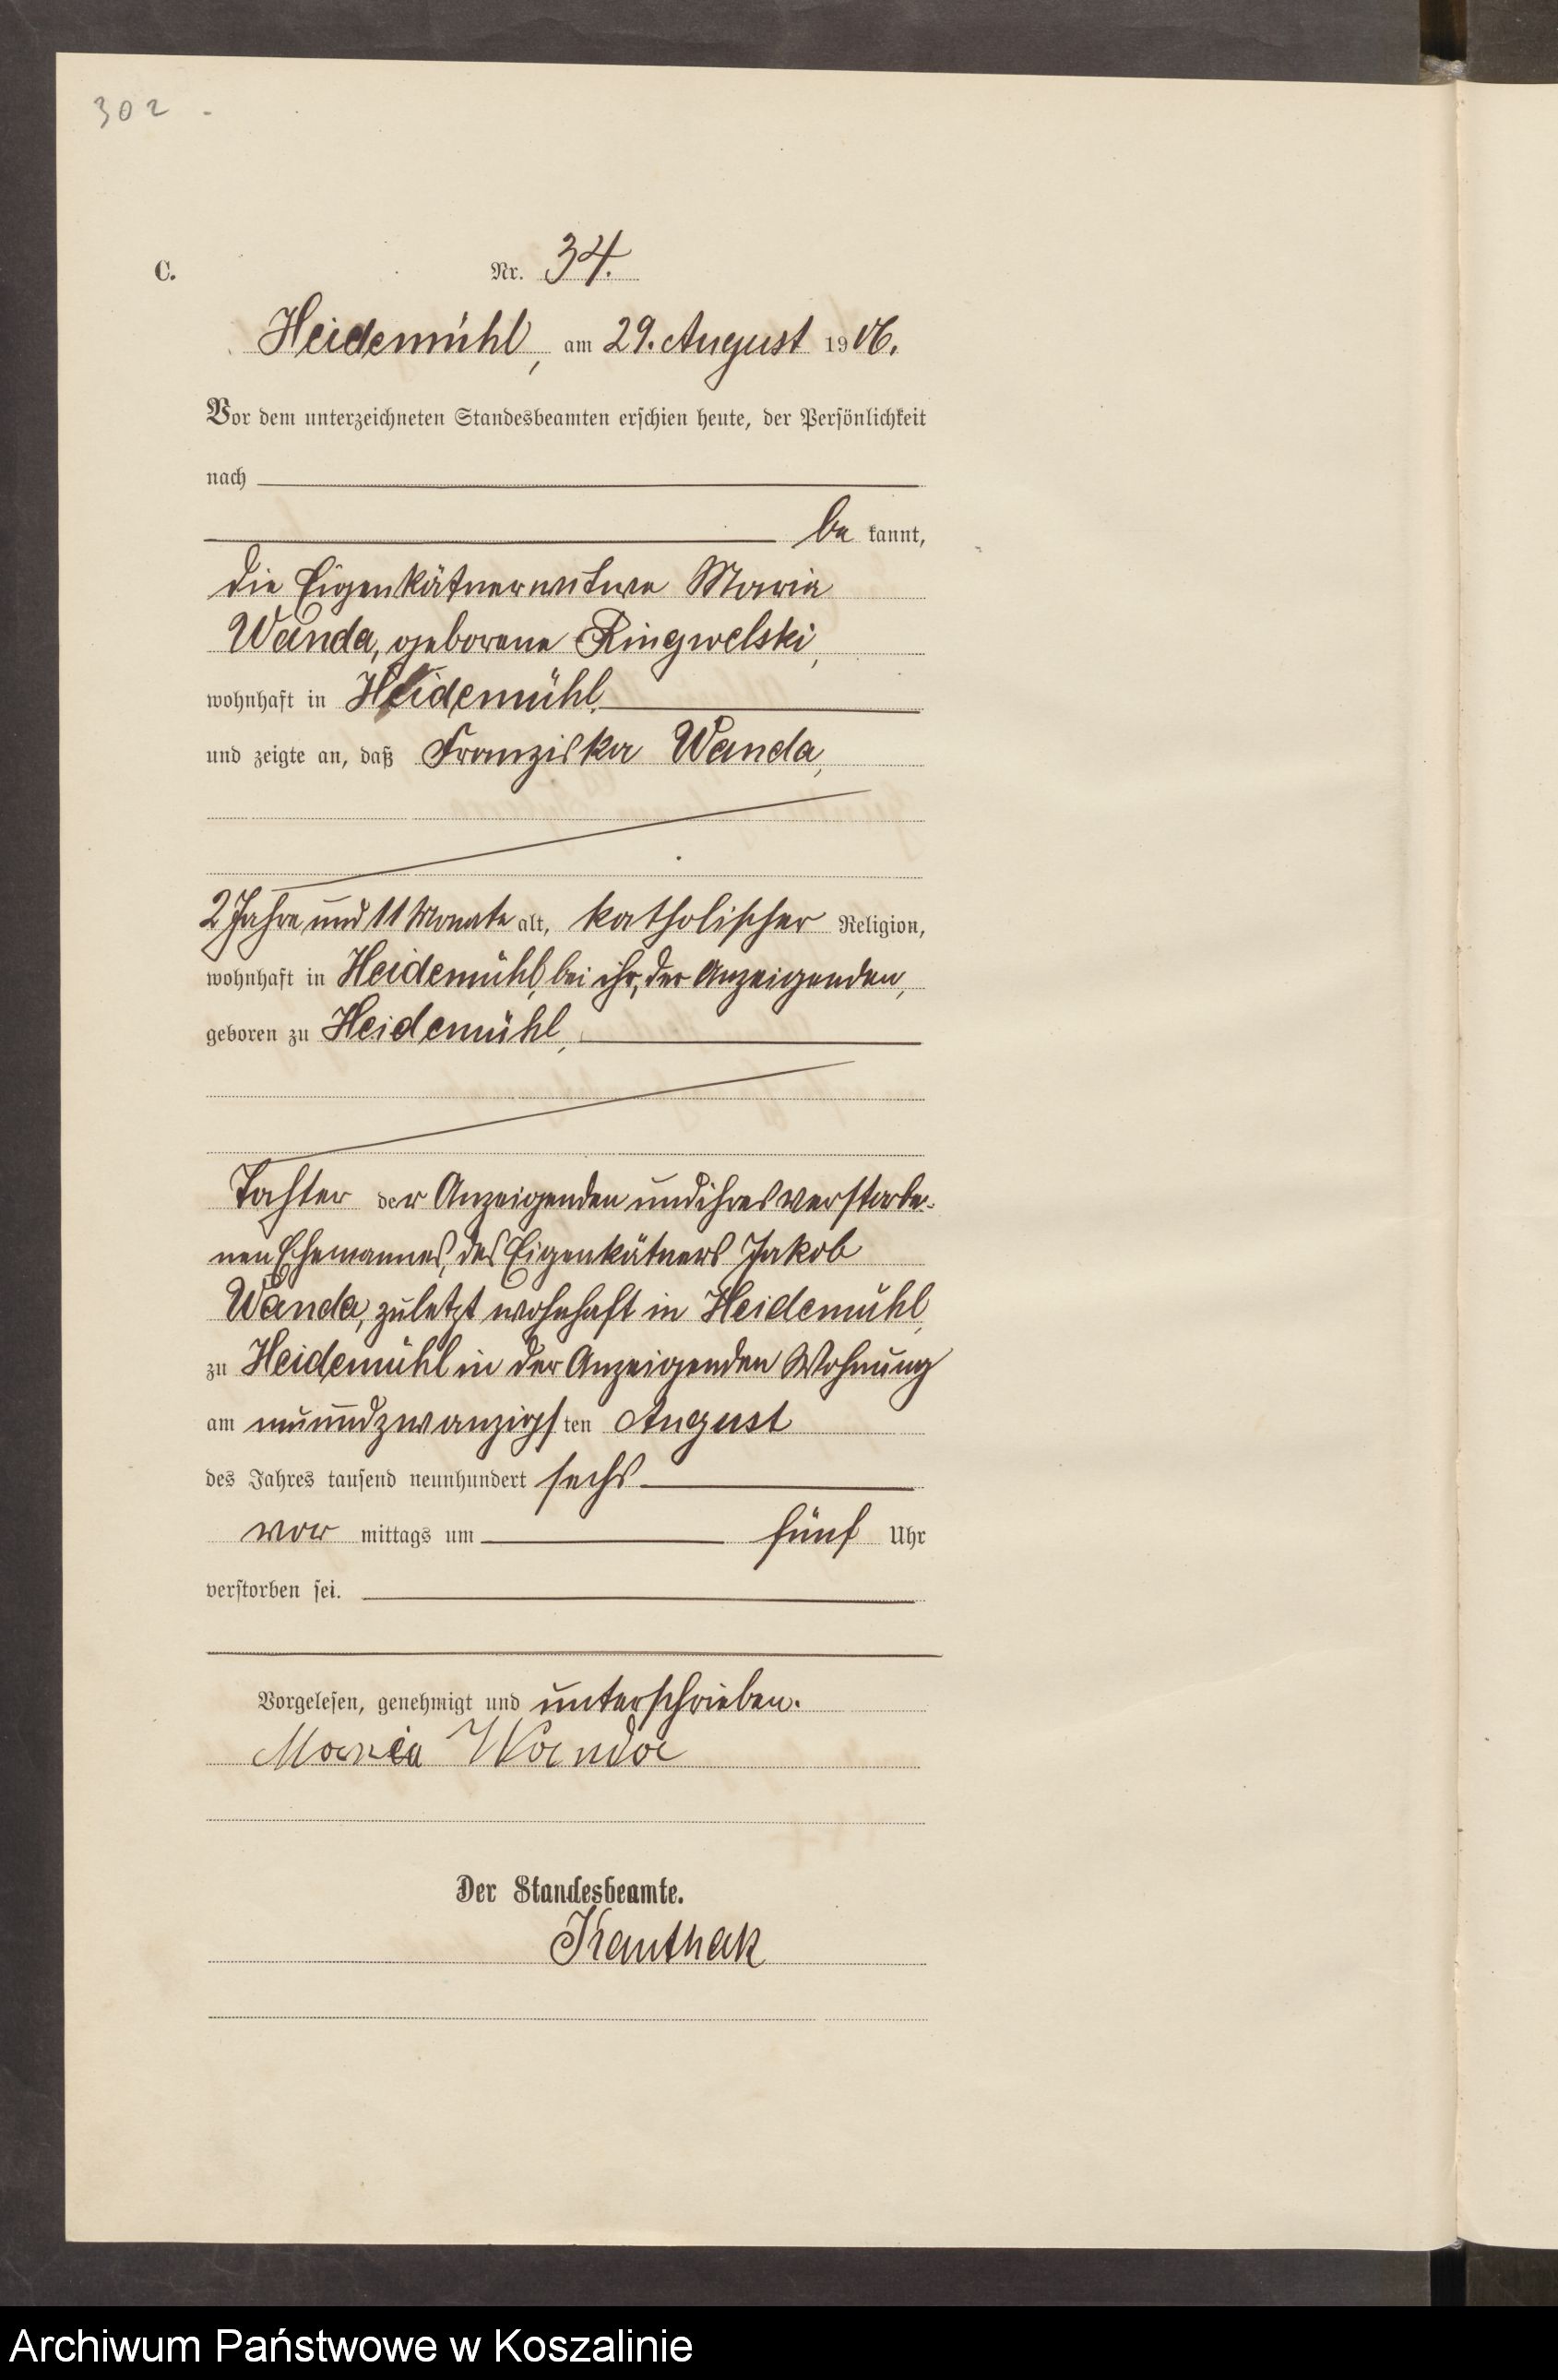 302 -
C.
Nr. 34.
Heidemühl, am 29. August 1906.
Vor dem unterzeichneten Standesbeamten erschien heute, der Persönlichkeit
nach
be kannt,
die Eigenkätnerwitwe Maria
Wanda, geborene Ringwelski,
wohnhaft in Heidemühl
und zeigte an, daß Franziska Wanda,
2 Jahre und 11 Monate alt, katholischer Religion,
wohnhaft in Heidemühl, bei ihr, der Anzeigenden,
geboren zu Heidemühl,
Tochter der Anzeigenden und ihres verstorbe-
nen Ehemannes, des Eigenkätners Jakob
Wanda, zuletzt wohnhaft in Heidemühl,
zu Heidemühl in der Anzeigenden Wohnung
am neunundzwanzigsten August
des Jahres tausend neunhundert sechs
vor mittags um fünf Uhr
verstorben sei.
Vorgelesen, genehmigt und unterschrieben.
Maria Wanda
Der Standesbeamte.
Kauthak
Archiwum Państwowe w Koszalinie